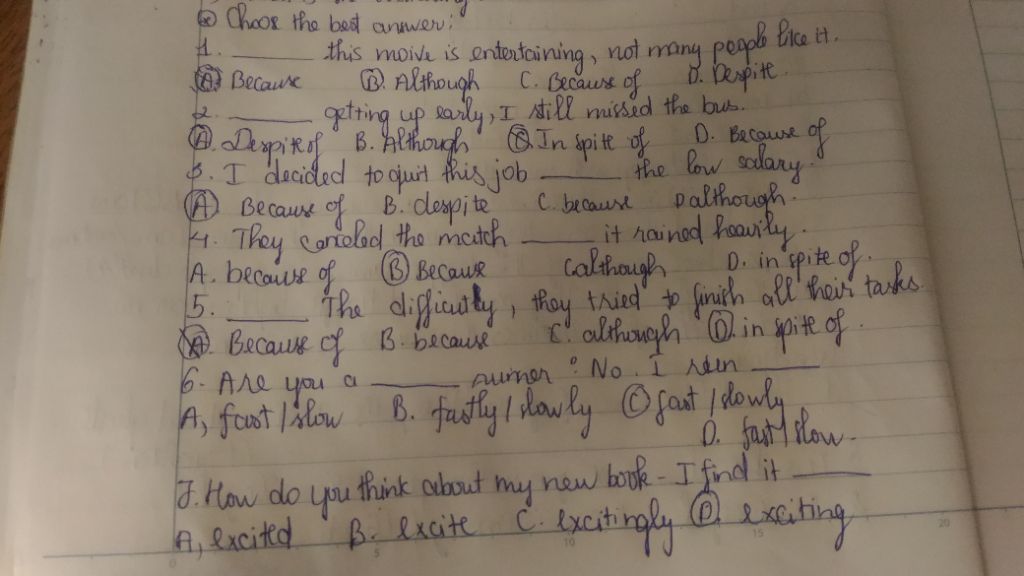 Choose the best answer:
1. ______ this moive is entertaining, not many people like it.
A Because B. Although C. Because of D. Despite
2. ______ getting up early, I still missed the bus.
A. Despite of B. Although C In spite of D. Because of
3. I decided to quit this job ______ the low salary.
A Because of B. despite C. because D although.
4. They canceled the match ______ it rained heavily.
A. because of B Because C although D. in spite of.
5. ______ The difficulty, they tried to finish all their tasks.
A. Because of B. because C. although D. in spite of.
6. Are you a ______ runner? No. I run ______
A, fast / slow B. fastly / slowly C fast / slowly
D. fast / slow.
7. How do you think about my new book - I find it ______
A, excited B. excite C. excitingly D. exciting